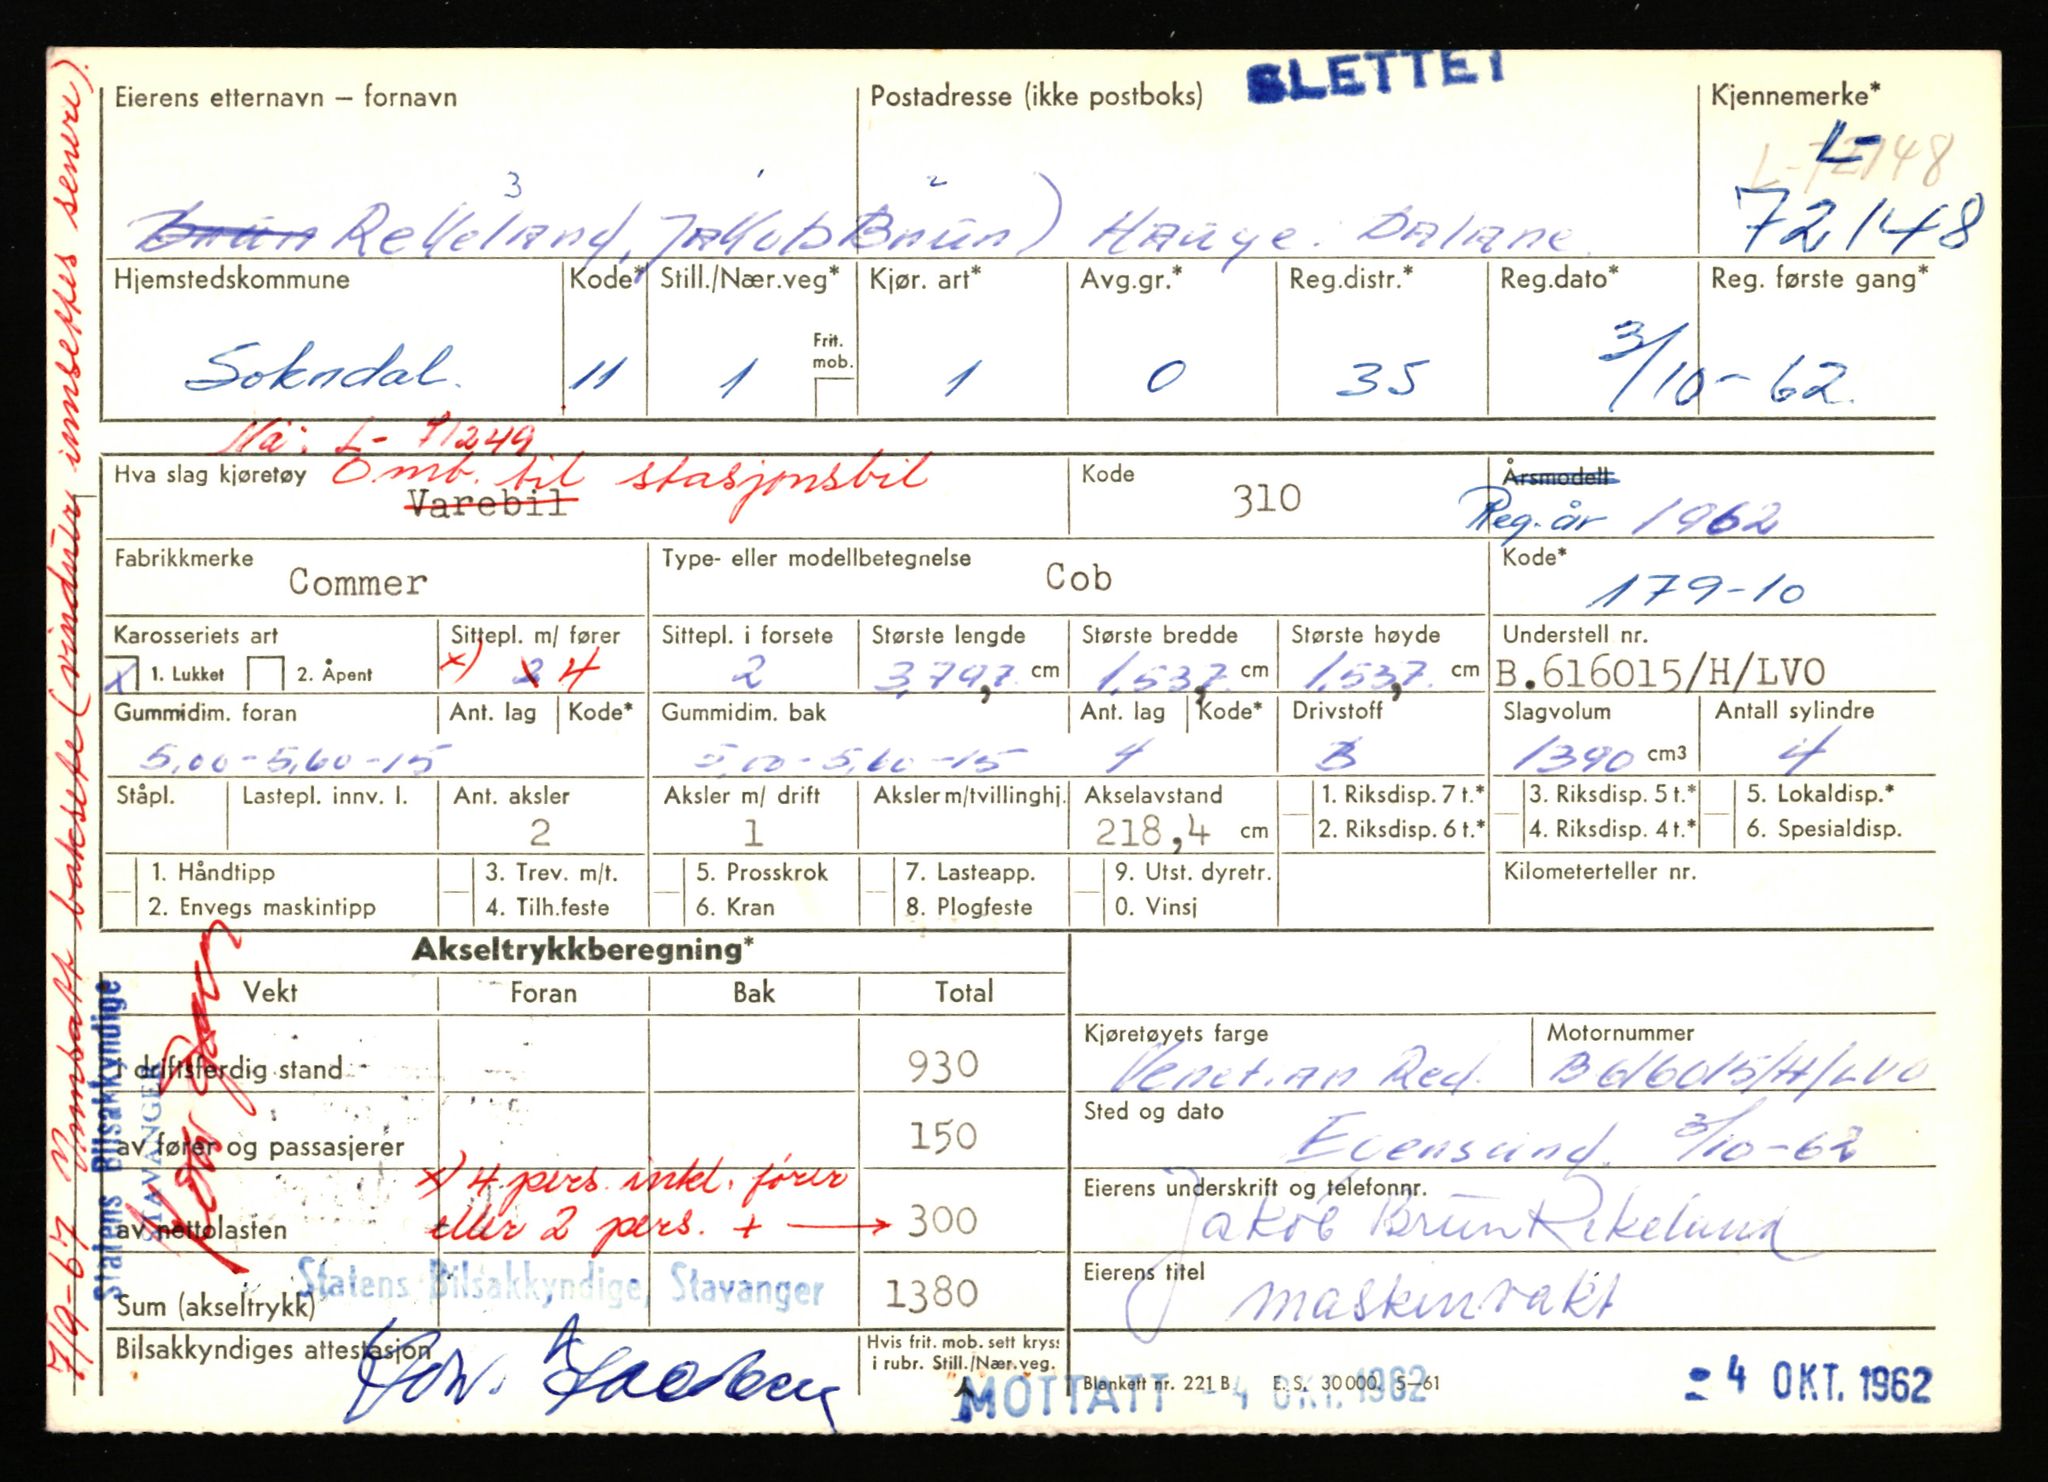 SLETTET
Eierens etternavn – fornavn
Postadresse (ikke postboks)
Kjennemerke*
L-72148
L-
72148
3 1 2
Rekeland, Jakob Brun) Hauge i Dalane
Hjemstedskommune Kode* Still./Nær.veg* Kjør. art* Avg.gr.* Reg.distr.* Reg.dato* Reg. første gang*
Frit. mob.
Sokndal. 11 1 1 0 35 3/10-62.
Nå: L-71249
Hva slag kjøretøy Omb. til stasjonsbil
Varebil
Kode 310
Årsmodell
Reg. år 1962
Fabrikkmerke Commer
Type- eller modellbetegnelse Cob
Kode* 179-10
Karosseriets art Sittepl. m/ fører Sittepl. i forsete Største lengde Største bredde Største høyde Understell nr.
x 1. Lukket 2. Åpent x) 4 2 3,797, cm 1,537, cm 1,537, cm B.616015/H/LVO
Gummidim. foran Ant. lag Kode* Gummidim. bak Ant. lag Kode* Drivstoff Slagvolum Antall sylindre
5,00-5,60-15 5,00-5,60-15 4 1390 cm3 4
Ståpl. Lastepl. innv. l. Ant. aksler Aksler m/ drift Aksler m/tvillinghj. Akselavstand
2 1 218,4 cm
1. Riksdisp. 7 t.* 3. Riksdisp. 5 t.* 5. Lokaldisp.*
2. Riksdisp. 6 t.* 4. Riksdisp. 4 t.* 6. Spesialdisp.
1. Håndtipp 3. Trev. m/t. 5. Prosskrok 7. Lasteapp. 9. Utst. dyretr. Kilometerteller nr.
2. Envegs maskintipp 4. Tilh.feste 6. Kran 8. Plogfeste 0. Vinsj
Akseltrykkberegning*
Vekt Foran Bak Total
i driftsferdig stand 930
av fører og passasjerer 150
x) 4 pers. inkl. fører
av nettolasten eller 2 pers. + → 300
Statens Bilsakkyndige, Stavanger
Sum (akseltrykk) 1380
Bilsakkyndiges attestasjon
Hvis frit. mob. sett kryss
i rubr. Still./Nær.veg.
Kjøretøyets farge Motornummer
Venetian Red. B616015/H/LVO
Sted og dato
Egersund. 3/10-62
Eierens underskrift og telefonnr.
Jakob Brun Rekeland
Eierens titel
maskinvakt
Blankett nr. 221 B E. S. 30 000. 5–61
MOTTATT - 4 OKT. 1962
- 4 OKT. 1962
7/9-67 Innsatt baksete (vinduer innsettes senere).
Statens Bilsakkyndige
STAVANGER